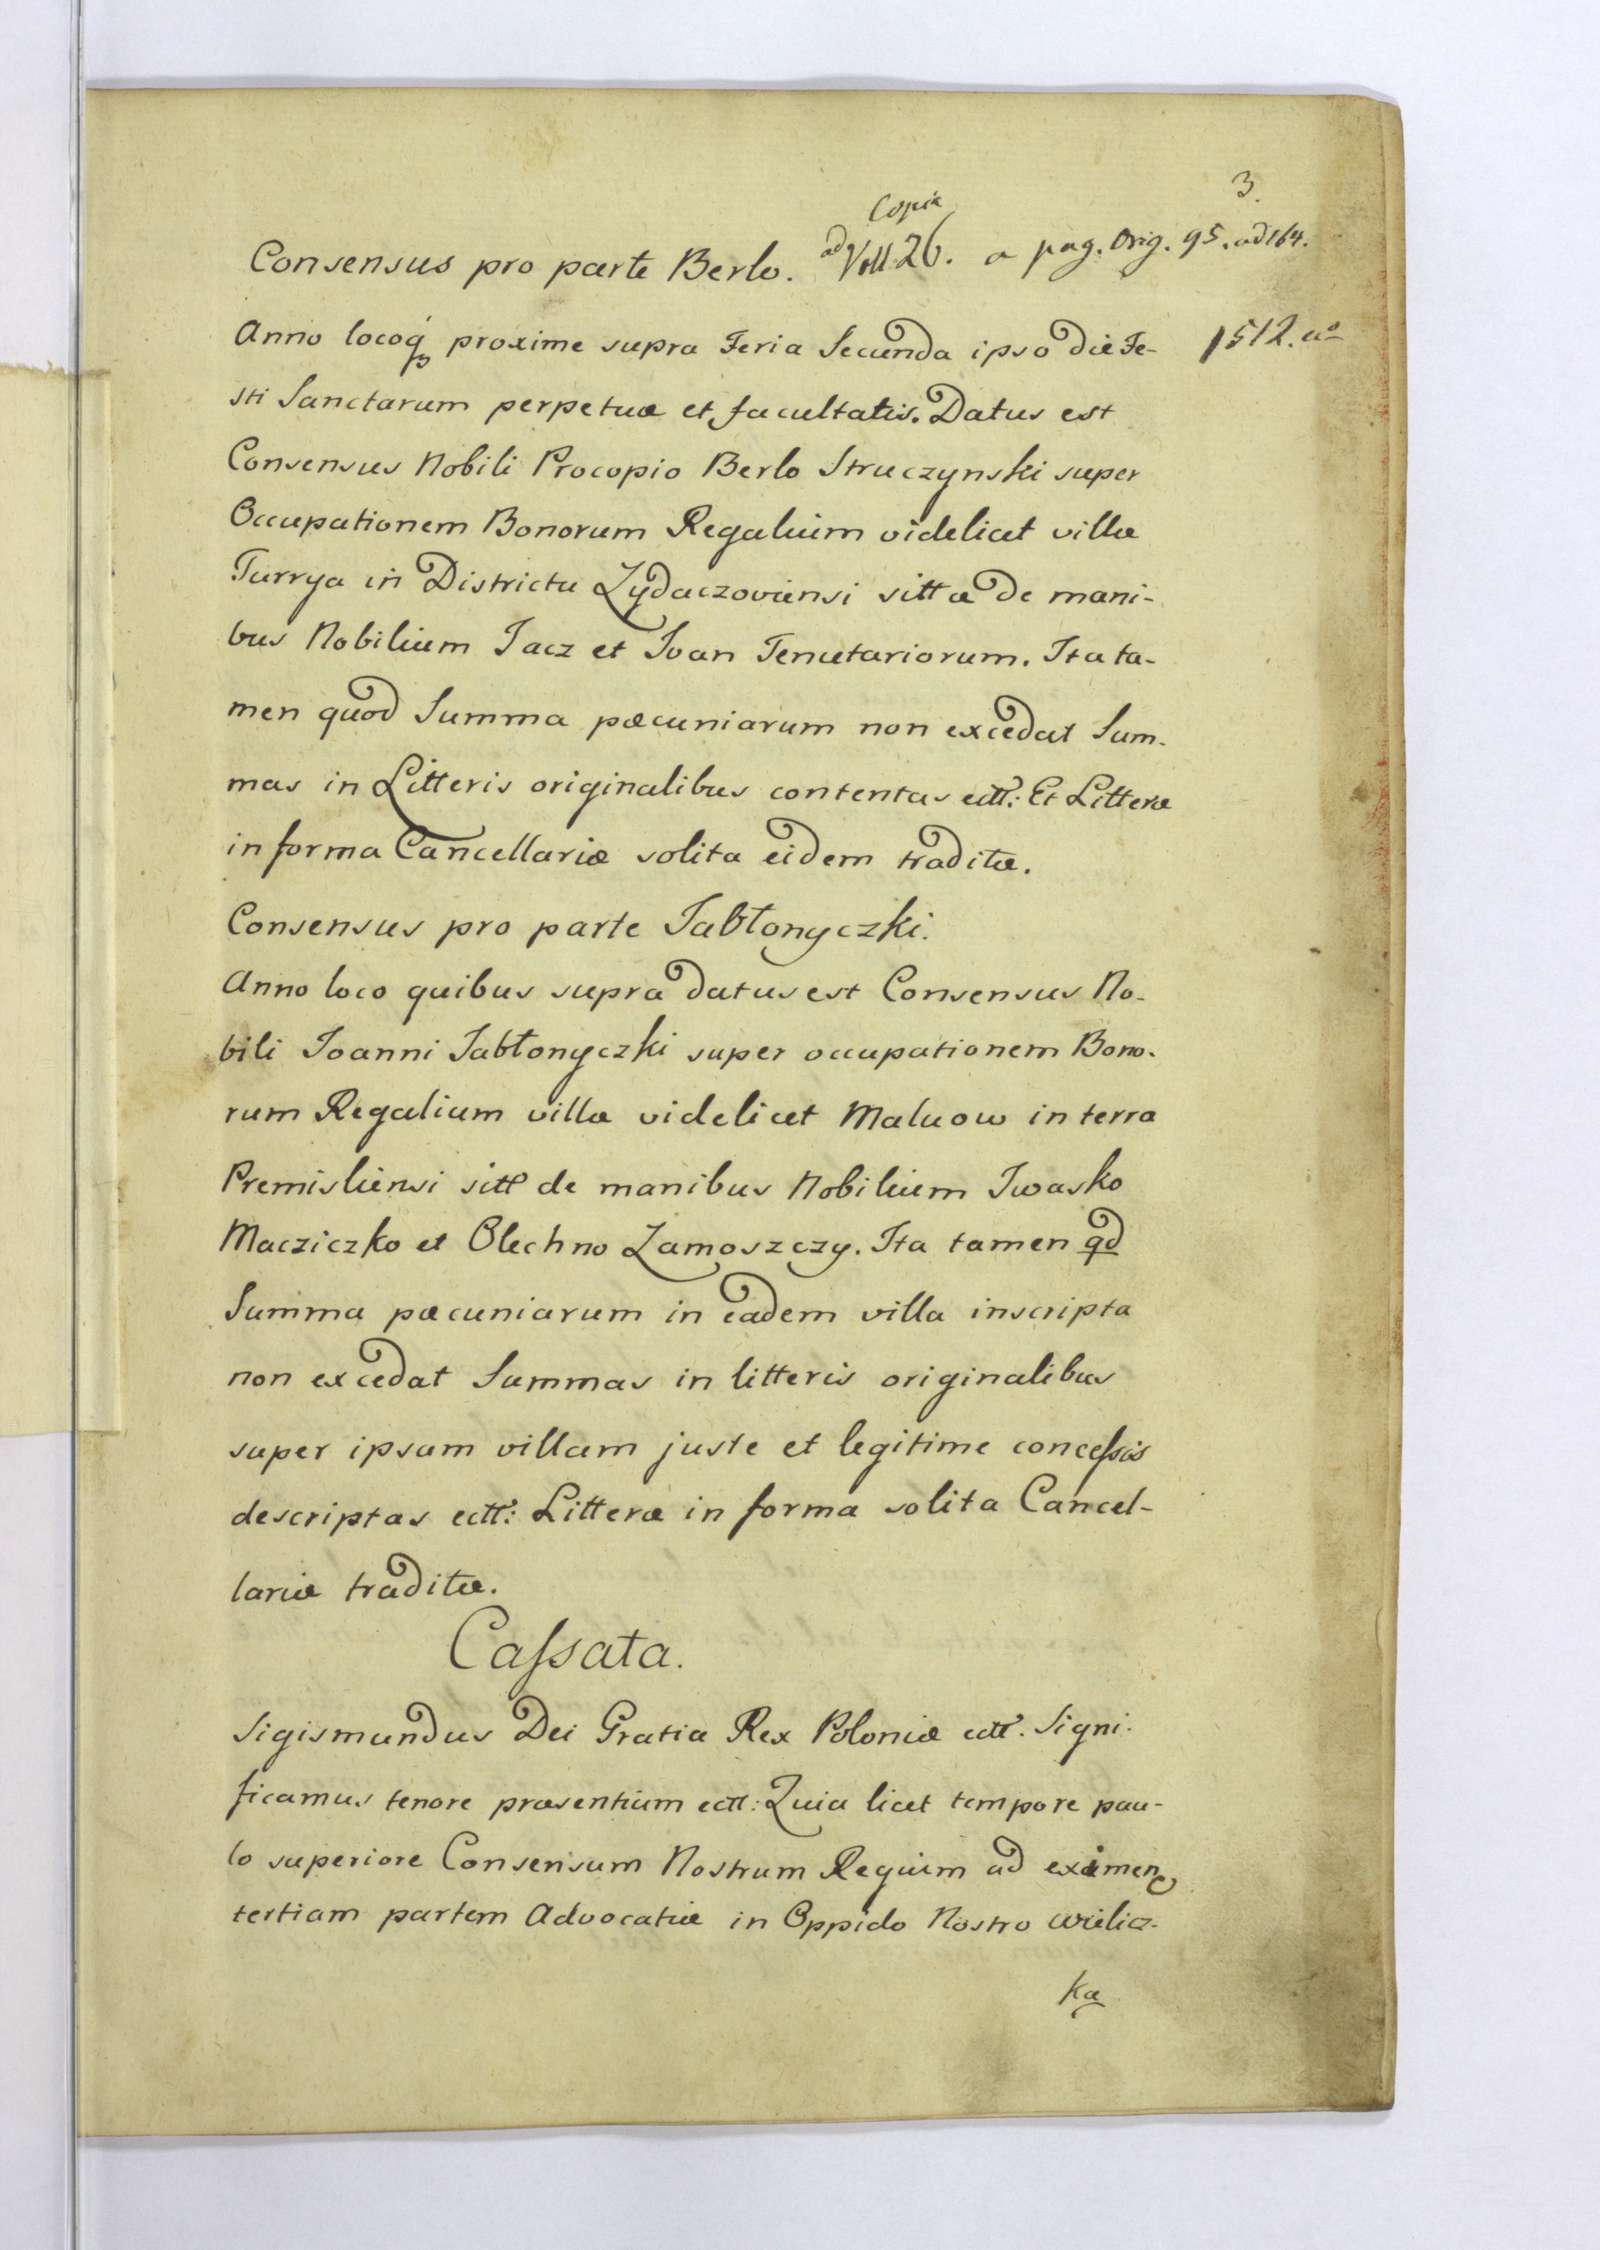 3.
Copia
Consensus pro parte Berlo. ad Voll 26. a pag. Orig. 95. ad 164.
Anno locoq́ꝫ proxime supra Feria Secunda ipso die Fe- 1512. aº
sti Sanctarum perpetuæ et facultatis. Datus est
Consensus Nobili Procopio Berlo Struczynski super
Occupationem Bonorum Regalium videlicet villæ
Turrya in Districtu Zydaczoviensi sittæ de mani-
bus Nobilium Jacz et Ivan Tenutariorum. Ita ta-
men quod Summa pæcuniarum non excedat Sum-
mas in Litteris originalibus contentas ectt: Et Litteræ
in forma Cancellariæ solita eidem traditæ.
Consensus pro parte Jabłonyczki.
Anno loco quibus supra datus est Consensus No-
bili Joanni Jabłonyczki super occupationem Bono-
rum Regalium villæ videlicet Maluow in terra
Premisliensi sitt de manibus Nobilium Iwasko
Macziczko et Olechno Zamoszczy. Ita tamen qd
Summa pæcuniarum in eadem villa inscripta
non excedat Summas in litteris originalibus
super ipsam villam juste et legitime conceſsis
descriptas ectt: Litteræ in forma solita Cancel-
lariæ traditæ.
Caſsata.
Sigismundus Dei Gratia Rex Poloniæ ectt. Signi-
ficamus tenore præsentium ectt: Quia licet tempore pau-
lo superiore Consensum Nostrum Regium ad eximen
tertiam partem Advocatiæ in Oppido Nostro Wielicz-
ka